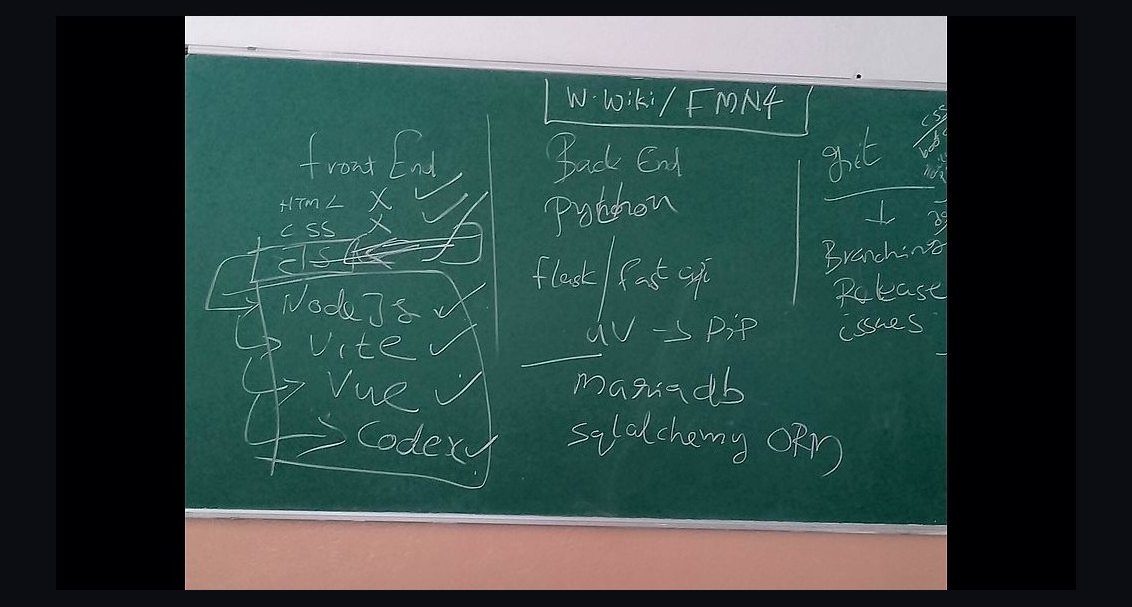 W.Wiki/FMN4
Front End
HTML X ✓
CSS X ✓
Node Js ✓
Vite ✓
Vue ✓
Codex ✓
Back End
Python
flask / fast api
uv → pip
mariadb
sqlalchemy ORM
git
CSS
↓
Branching
Release
issues